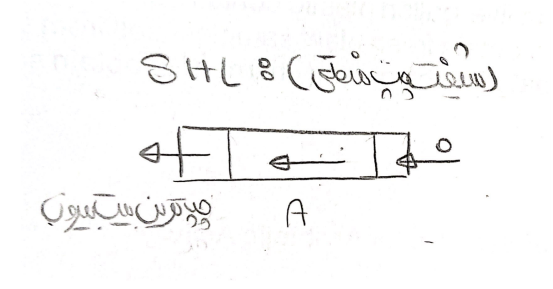 SHL : (شیفت چپ منطقی)
0
چپ‌ترین بیت بیرون
A